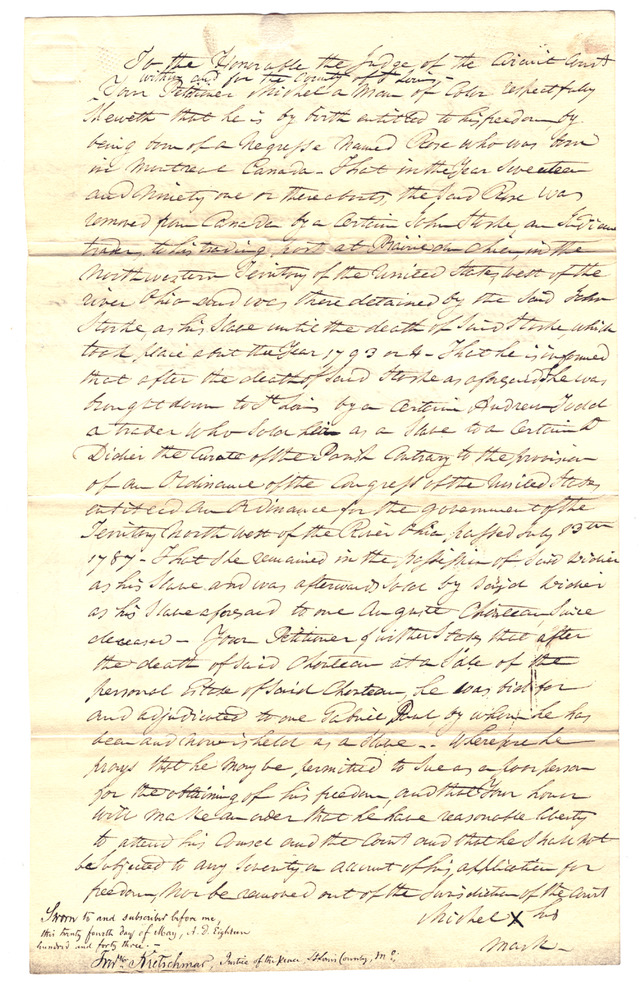 To the Honorable the Judge of the Circuit Court
within and for the County of St Louis
Your Petitioner Michel a Man of Color respectfully
Sheweth that he is by birth entitled to his freedom by
being born of a Negresse named Rose who was born
in Montreal Canada - That in the Year Seventeen
and Ninety one or thereabouts, the said Rose was
removed from Canada by a Certain John Stoke, an Indian
trader, to his trading post at Prairie du Chien, in the
Northwestern Territory of the United States west of the
river Ohio and was there detained by the said John
Stoke, as his Slave until the death of Said Stoke, which
took place about the Year 1793 or 4 - That he is informed
that after the death of said Stoke as aforesaid She was
brought down to St Louis by a Certain Andrew Todd
a trader who Sold her as a Slave to a Certain
Didier the Curate of the Parish Contrary to the provision
of an Ordinance of the Congress of the United States
entitled An Ordinance for the government of the
Territory North west of the River Ohio, passed July 13th
1787 - That She remained in the possession of Said Didier
as his Slave and was afterwards Sold by Said Didier
as his Slave aforesaid to one Auguste Chouteau, Since
deceased - Your Petitioner further States that after
the death of said Chouteau at a Sale of the
personal Estate of Said Chouteau, he was bid for
and adjudicated to one Gabriel Paul by whom he has
been and now is held as a Slave - Wherefore he
prays that he may be permitted to Sue as a poor person
for the obtaining of his freedom, and that Your honor
will make an order that he have reasonable liberty
to attend his Counsel and the Court and that he Shall not
be Subjected to any Severity on account of his application for
freedom, Nor be removed out of the Jurisdiction of the Court
Michel X his
mark -
Sworn to and subscribed before me,
this twenty fourth day of May, A. D. Eighteen
hundred and forty three. -
Kretschmar, Justice of the Peace, St Louis County, Mo.